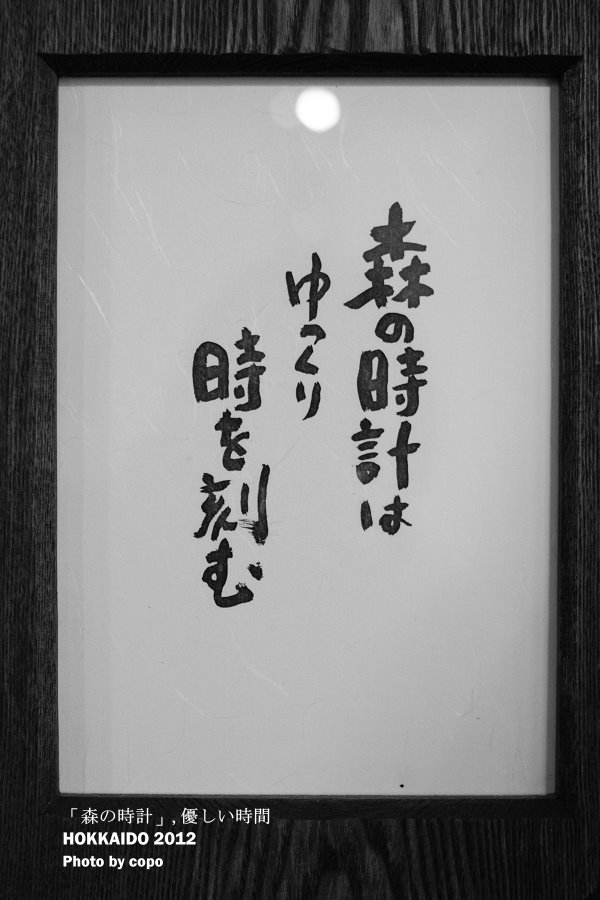 森の時計は
ゆっくり
時を刻む
「森の時計」,優しい時間
HOKKAIDO 2012
Photo by copo